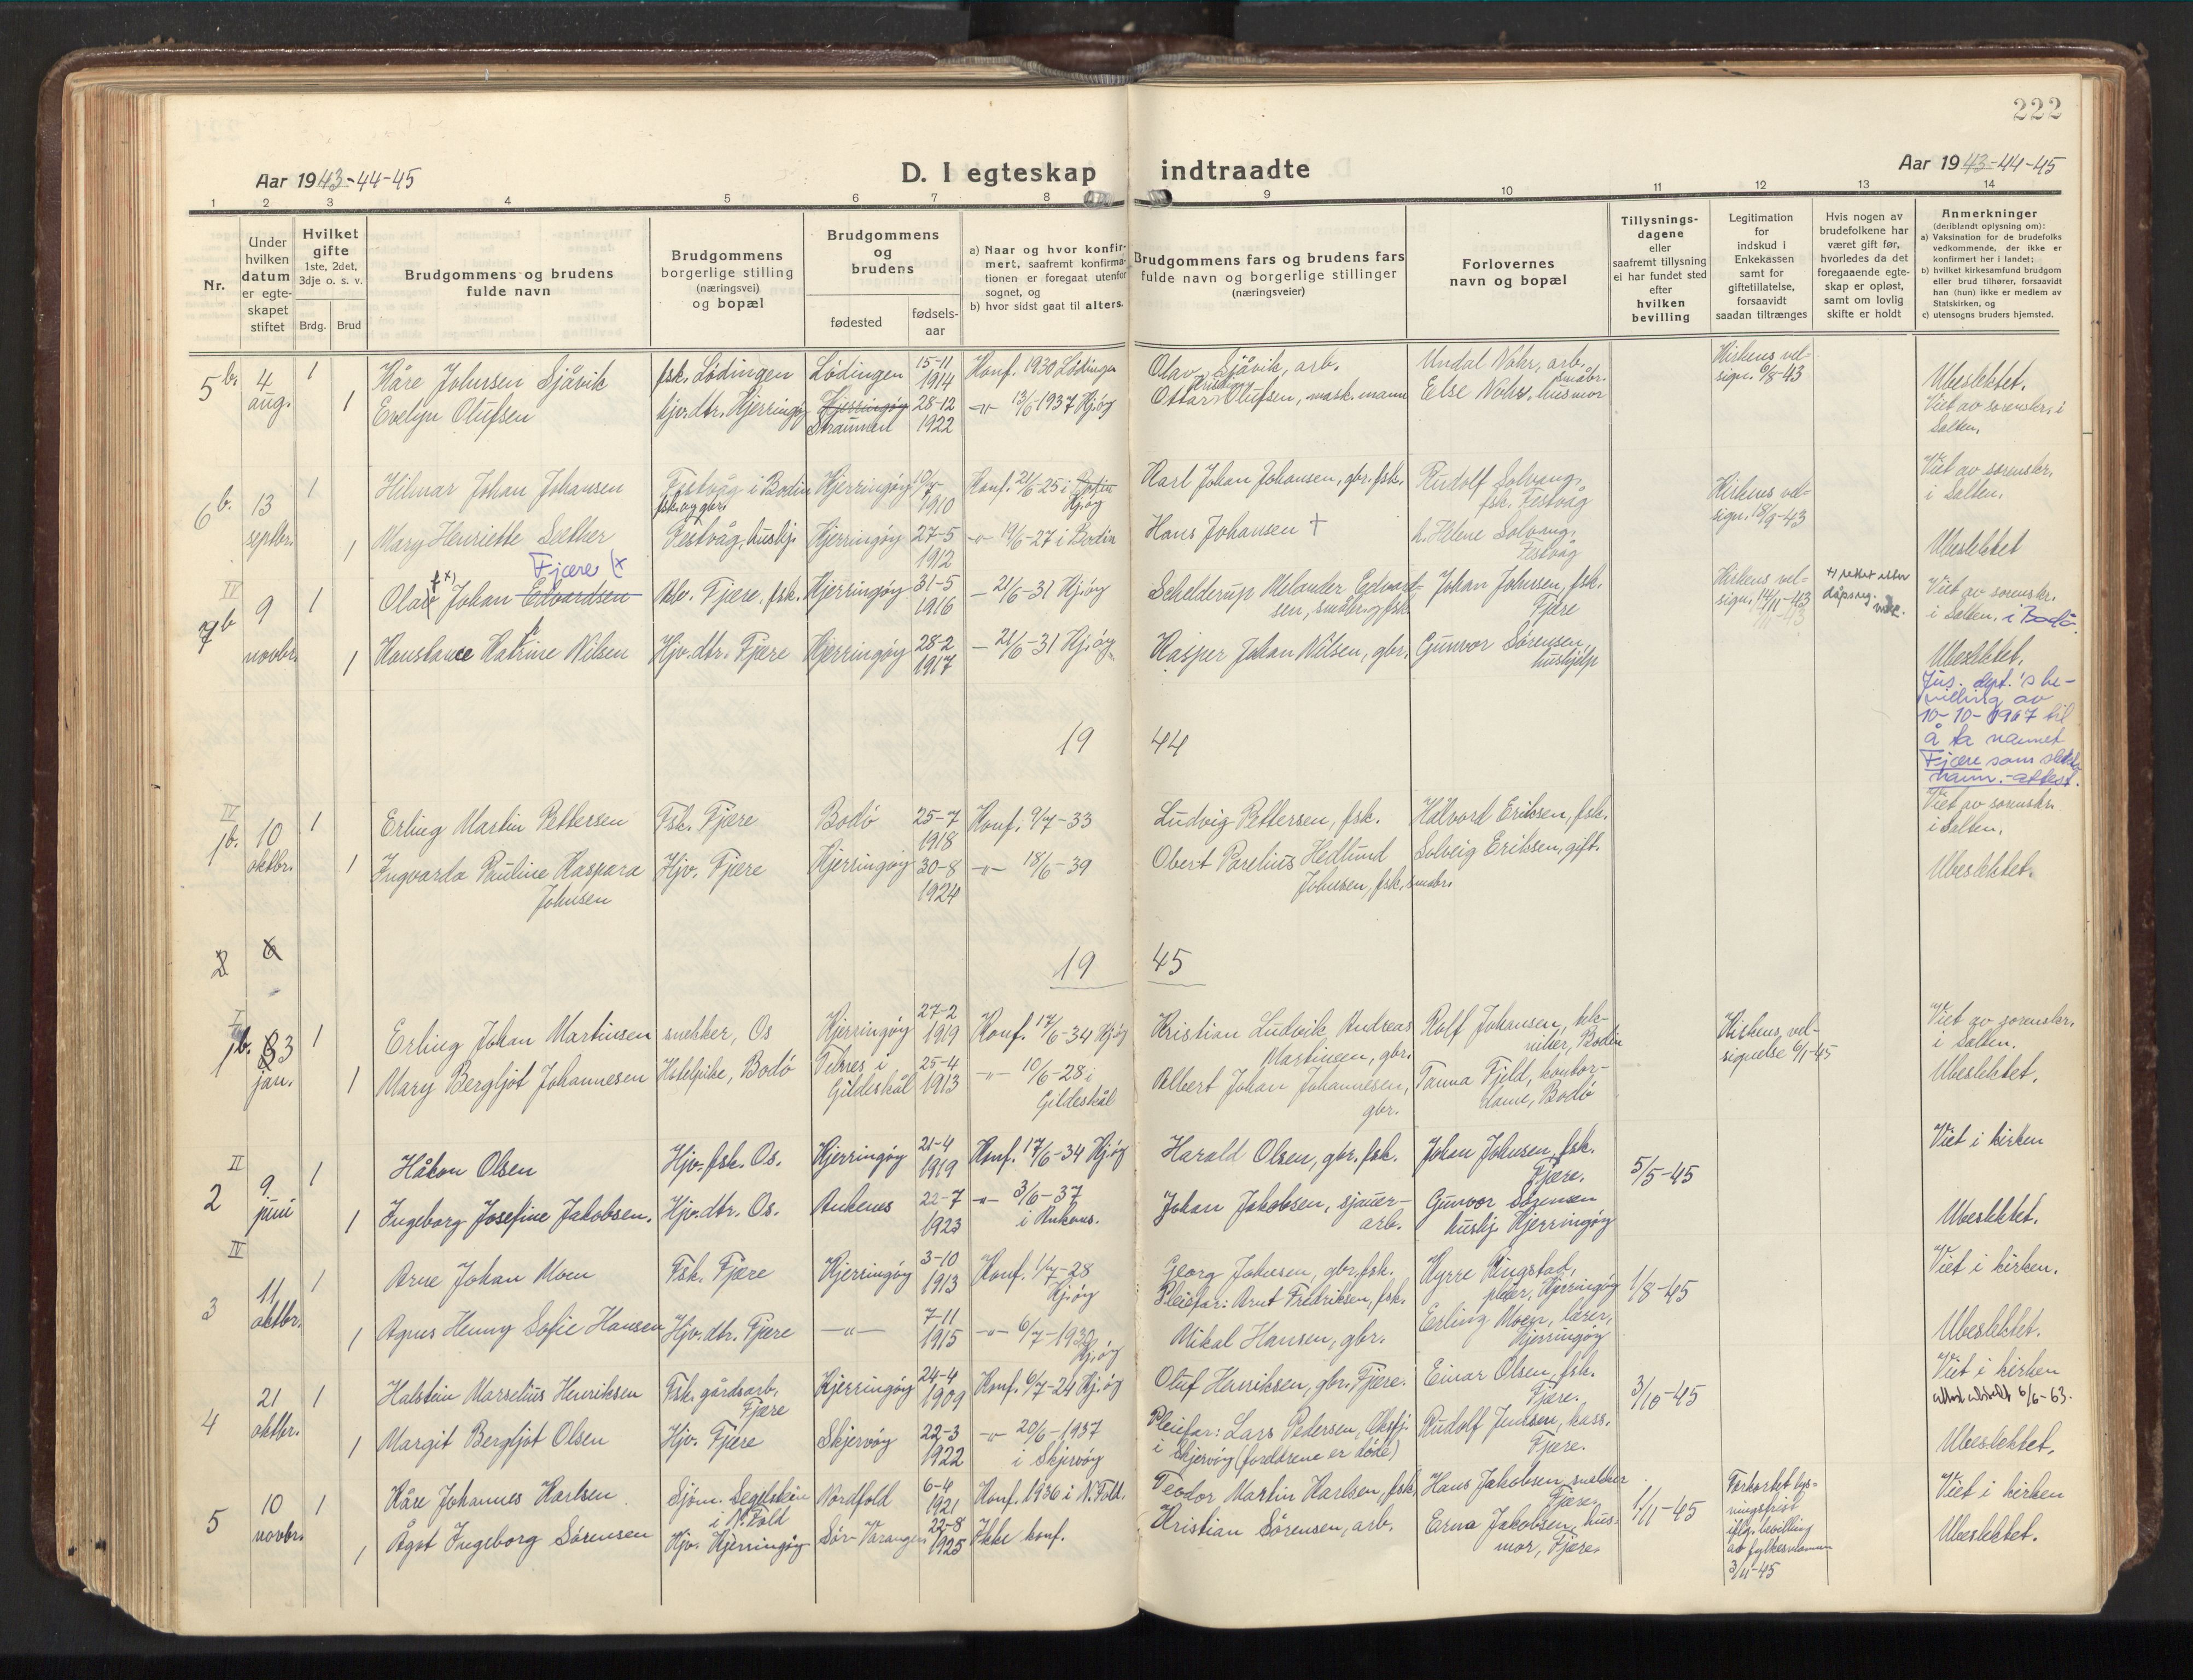 222
Aar 1943-44-45
D. I egteskap indtraadte
Aar 1943-44-45
1 2 3 4 5 6 7 8 9 10 11 12 13 14
Nr.
Under
hvilken
datum
er egte-
skapet
stiftet
Hvilket
gifte
1ste, 2det,
3dje o. s. v.
Brdg. Brud
Brudgommens og brudens
fulde navn
Brudgommens
borgerlige stilling
(næringsvei)
og bopæl
Brudgommens
og
brudens
fødested
fødsels-
aar
a) Naar og hvor konfir-
mert, saafremt konfirma-
tionen er foregaat utenfor
sognet, og
b) hvor sidst gaat til alters.
Brudgommens fars og brudens fars
fulde navn og borgerlige stillinger
(næringsveier)
Forlovernes
navn og bopæl
Tillysnings-
dagene
eller
saafremt tillysning
ei har fundet sted
efter
hvilken
bevilling
Legitimation
for
indskud i
Enkekassen
samt for
giftetillatelse,
forsaavidt
saadan tiltrænges
Hvis nogen av
brudefolkene har
været gift før,
hvorledes da det
foregaaende egte-
skap er opløst,
samt om lovlig
skifte er holdt
Anmerkninger
(deriblandt oplysning om):
a) Vaksination for de brudefolks
vedkommende, der ikke er
konfirmert her i landet;
b) hvilket kirkesamfund brudgom
eller brud tilhører, forsaavidt
han (hun) ikke er medlem av
Statskirken, og
c) utensogns bruders hjemsted.
5 b. 4 aug. 1
Kåre Johnsen Sjåvik
fsk. Lødingen
Lødingen
15-11
1914
Konf. 1930 Lødingen
Olav Sjåvik, arb.
Undal Nohr, arb.
småbr.
Kirkens vel-
sign. 6/8-43
Ubeslektet.
Viet av sorenskr. i
Salten.
1
Evelyn Olufsen
hjv. dtr. Kjerringøy
Kjerringøy
Straumen
28-12
1922
-"- 13/6-1937 Kj.øy
Ottar Kristian Olufsen, mask.mann
Else Nohr, husmor
6 b. 13 septbr. 1
Hilmar Johan Johansen
Festvåg i Bodin
fsk. og gbr.
Kjerringøy
1910
Konf. 21/6-25 i Bodin
Kj.øy
Karl Johan Johansen, gbr. fsk.
Rudolf Solvang,
fsk. Festvåg
Kirkens vel-
sign. 18/9-43
Viet av sorenskr.
i Salten.
1
Mary Henriette Sæther
Festvåg, hushj.
Kjerringøy
27-5
1912
-"- 19/6-27 i Bodin
Hans Johansen †
h. Helene Solvang,
Festvåg
Ubeslektet
IV
7 b 9 novbr. 1
Fjære (x
Olav x) Johan Edvardsen
Arb. Fjære, fsk.
Kjerringøy
31-5
1916
- 21/6-31 Kj.øy
Schelderup Melander Edvard-
sen, småbr. og fsk.
Johan Johnsen, fsk.
Fjære
Kirkens vel-
sign. 14/11-43
+) rettet etter
dåpsreg.
Viet av sorenskr.
i Salten. i Bodø.
1
Konstance Katrine Nilsen
Hjv. dtr. Fjære
Kjerringøy
28-2
1917
- 21/6-31 Kj.øy
Kasper Johan Nilsen, gbr.
Gunvor Sørensen
hushjelp
Ubeslektet.
Jus. dept.'s be-
villing av
10-10-1947 til
å ta navnet
Fjære som slekts-
navn. - attest.
19 44
IV
1 b. 10 oktbr. 1
Erling Martin Pettersen
Fsk. Fjære
Bodø
25-7
1918
Konf. 9/7-33
Ludvig Pettersen, fsk.
Halvard Eriksen, fsk.
Viet av sorenskr.
i Salten.
1
Ingvarda Pauline Kaspara
Johnsen
Hjv. Fjære
Kjerringøy
30-8
1924
-"- 18/6-39
Obert Parelius Hedlund
Johnsen, fsk. småbr.
Solveig Eriksen, gift.
Ubeslektet.
2 6
19 45
I
1 b. 3 jan. 1
Erling Johan Martinsen
snekker, Os
Kjerringøy
27-2
1919
Konf. 17/6-34 Kj.øy
Kristian Ludvik Andreas
Martinsen, gbr.
Rolf Johansen, tek-
niker, Bodin
Kirkens vel-
signelse 6/1-45
Viet av sorenskr.
i Salten.
1
Mary Bergljot Johannesen
Hotelpike, Bodø
Telnes i
Gildeskål
25-4
1913
-"- 10/6-28 i
Gildeskål
Albert Johan Johannesen,
gbr.
Tanna Fjeld, kontor-
dame, Bodø
Ubeslektet.
II
2 9 juni 1
Håkon Olsen
Hjv. fsk. Os.
Kjerringøy
21-4
1919
Konf. 17/6-34 Kj.øy
Harald Olsen, gbr. fsk.
Johan Johnsen, fsk.
Fjære.
5/5-45
Viet i kirken
1
Ingeborg Josefine Jakobsen.
Hjv. dtr. Os.
Ankenes
22-7
1923
-"- 3/6-37
i Ankens.
Johan Jakobsen, sjauer-
arb.
Gunvor Sørensen
hushj. Kjerringøy
Ubeslektet.
IV
3 11 oktbr. 1
Arne Johan Moen
Fsk. Fjære
Kjerringøy
3-10
1913
Konf. 1/7-28
Kj.øy
Georg Johnsen, gbr. fsk.
Pleiefar: Arnt Fredriksen, fsk.
Kyrre Ringstad,
pleier, Kjerringøy
1/8-45
Viet i kirken.
1
Agnes Henny Sofie Hansen
Hjv. dtr. Fjære
-"-
7-11
1915
-"- 6/7-1930
Kj.øy
Mikal Hansen, gbr.
Erling Moen, lærer,
Kjerringøy
Ubeslektet.
4 21 oktbr. 1
Halstein Marselius Henriksen
Fsk. gårdsarb.
Fjære
Kjerringøy
24-4
1909
Konf. 6/7-24 Kj.øy
Oluf Henriksen, gbr. Fjære.
Einar Olsen, fsk.
Fjære.
3/10-45
Viet i kirken
6/6-63.
1
Margit Bergljot Olsen
Hjv. Fjære
Skjervøy
22-3
1922
-"- 20/6-1937
i Skjervøy
Pleiefar: Lars Pedersen,
i Skjervøy (foreldrene er døde)
Rudolf Jenssen, kass.
Fjære.
Ubeslektet.
5 10 novbr. 1
Kåre Johannes Karlsen
Sjøm. Segelstein
i N. Fold
Nordfold
6-4
1921
Konf. 1936 i N. Fold.
Teodor Martin Karlsen, fsk.
Hans Jakobsen, snekker
Fjære.
1/11-45
Forkortet lys-
ningsfrist
iflg. bevilling
av fylkesmannen
3/11-45
Viet i kirken
1
Ågot Ingeborg Sørensen
Hjv. Kjerringøy
Sør-Varanger
22-8
1925
Ikke konf.
Kristian Sørensen, arb.
Erna Jakobsen, hus-
mor, Fjære.
Ubeslektet.